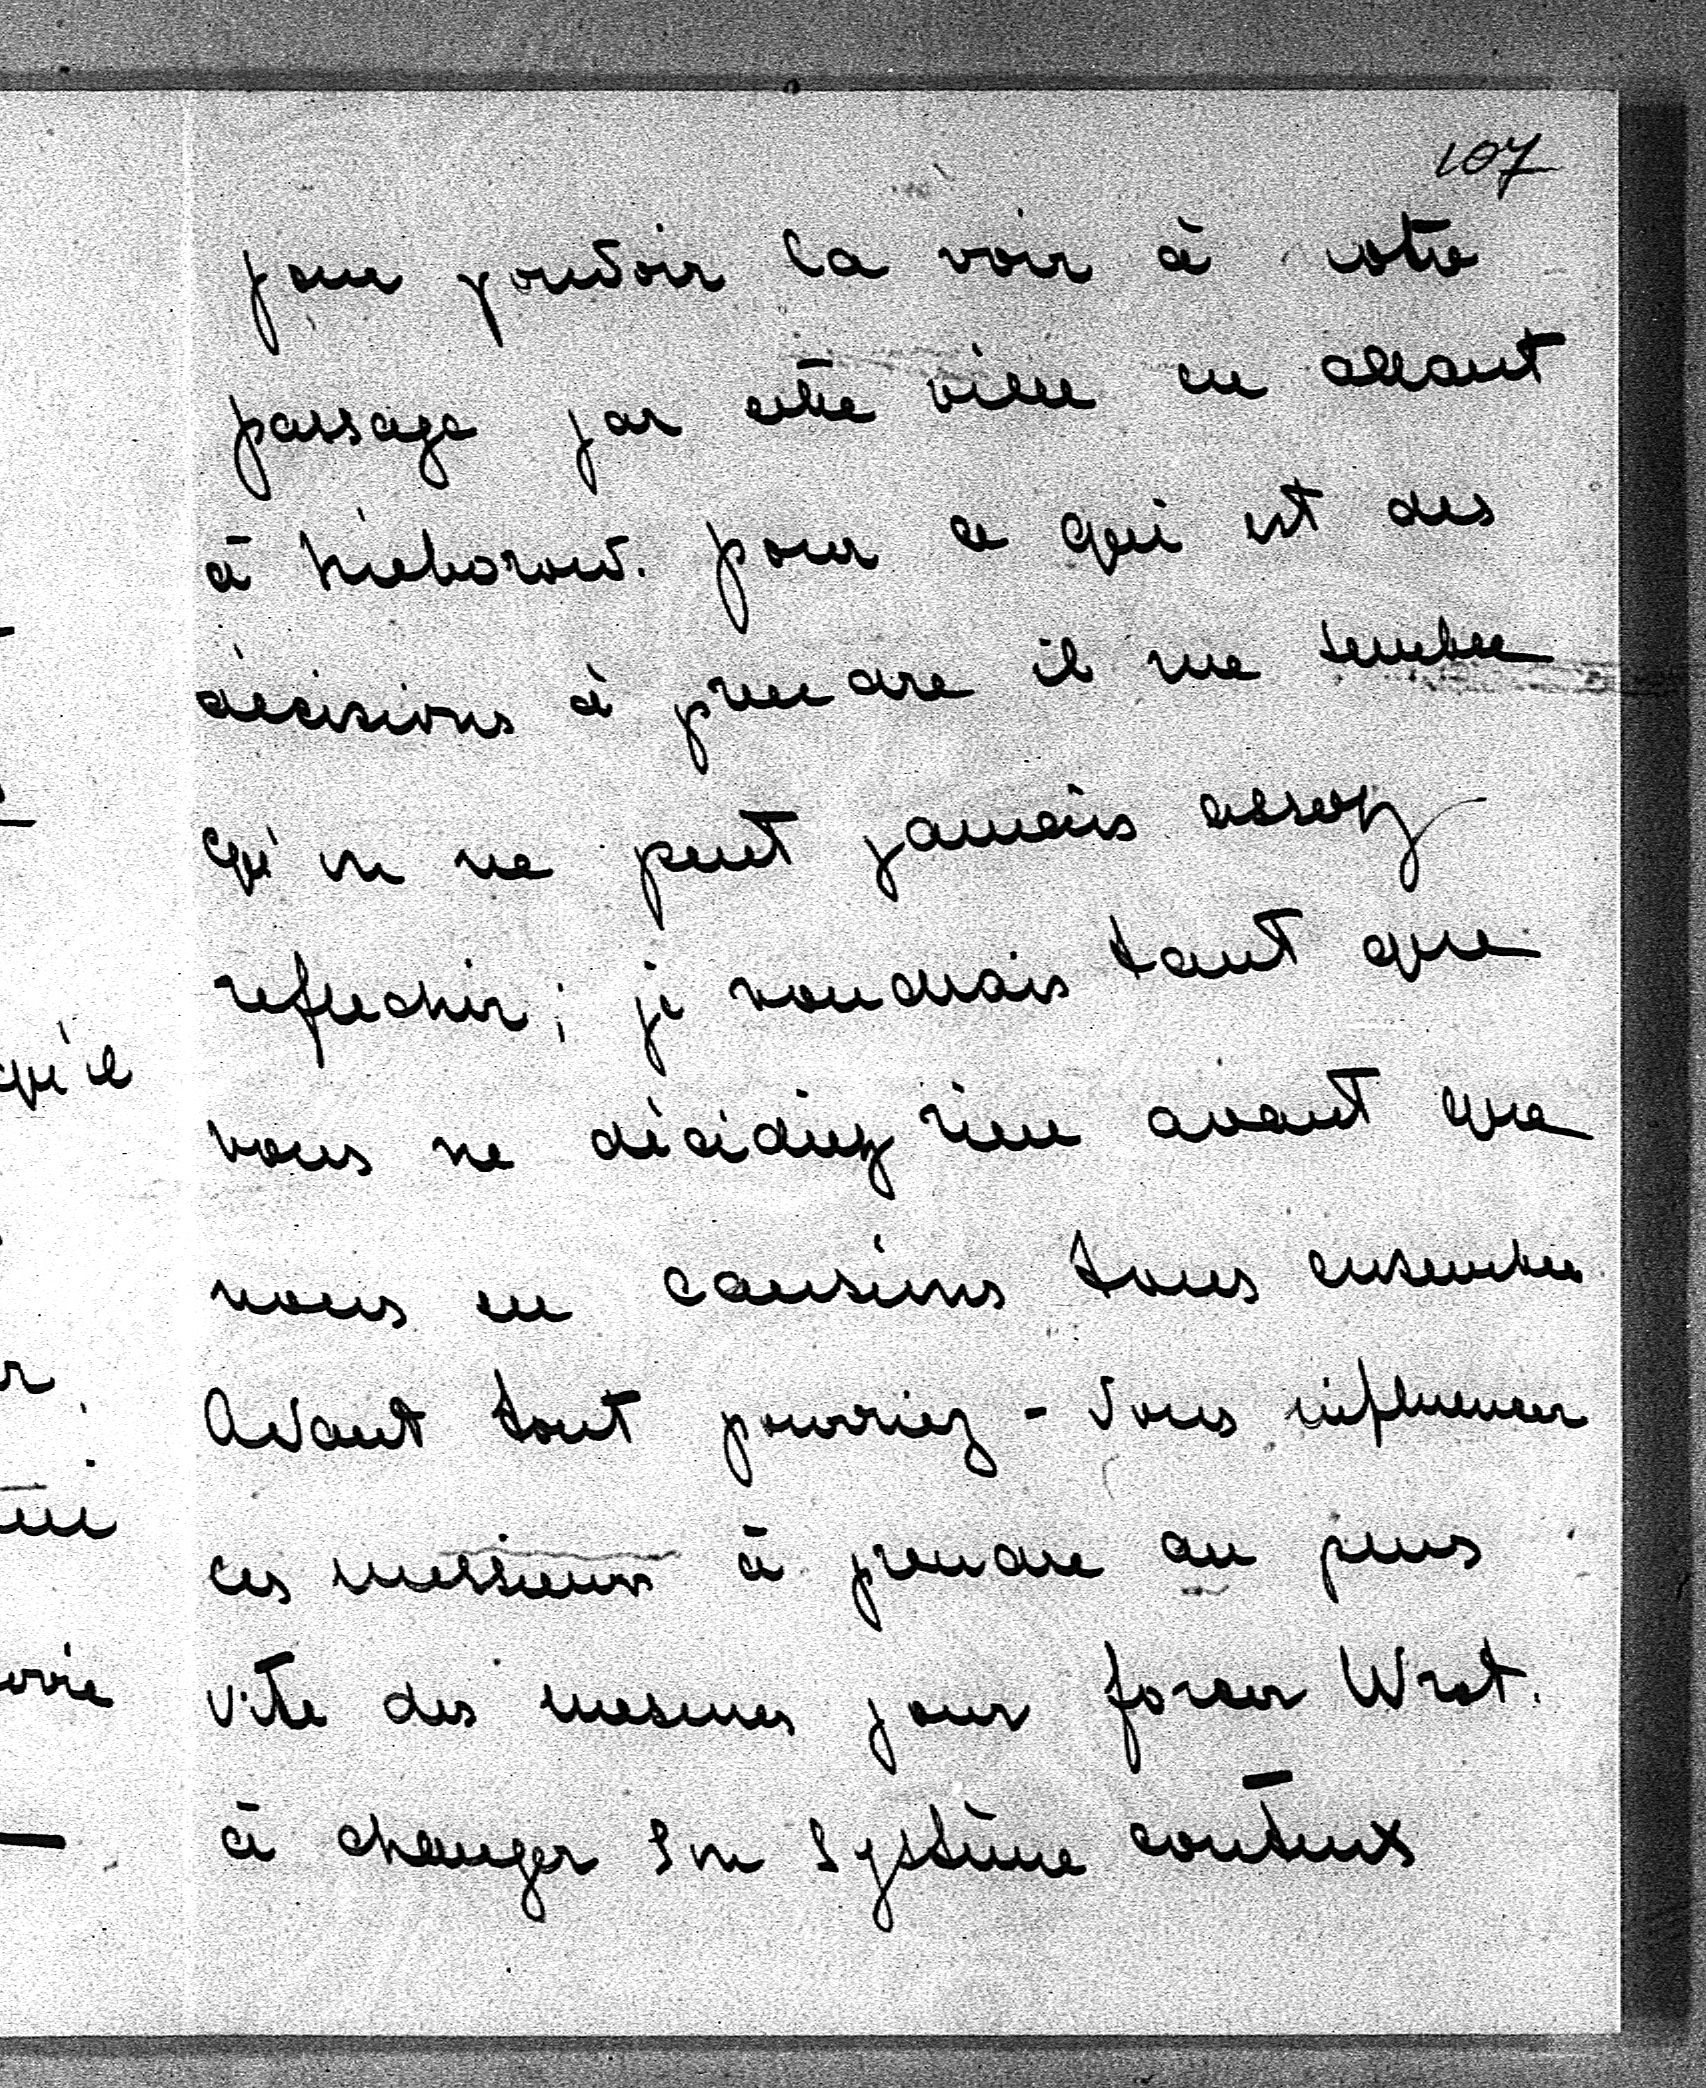 107
pour pouvoir la voir à votre
passage par cette ville en allant
à Nieborow. pour ce qui est des
décisions à prendre il me semble
qu'on ne peut jamais assez
reflechir; je voudrais tant que
vous ne décidiez rien avant que
nous en causions tous ensemble
Avant tout pourriez-vous influencer
ces messieurs à prendre au plus
vite des mesures pour forcer Wrot.
à changer son système couteux
qu'il